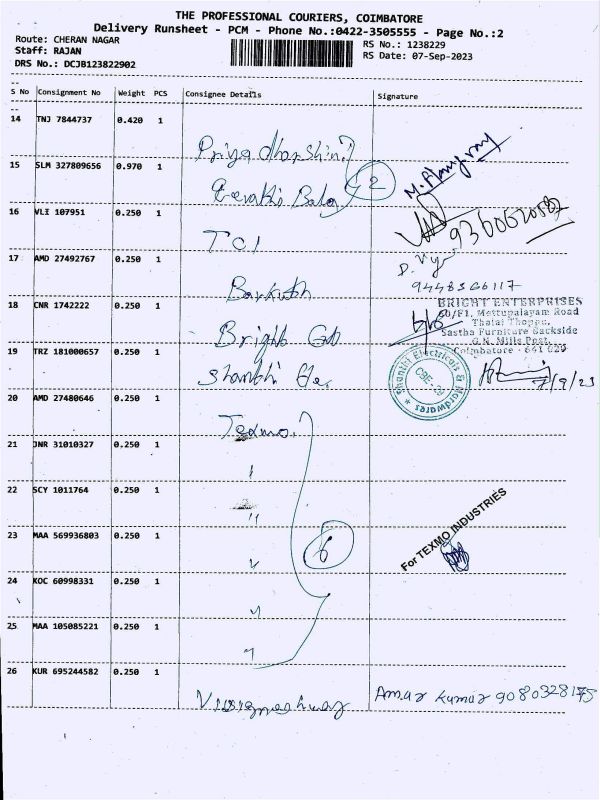 THE PROFESSIONAL COURIERS, COIMBATORE
Delivery Runsheet - PCM - Phone No.:0422-3505555 - Page No.:2
Route: CHERAN NAGAR
Staff: RAJAN
DRS No.: DCJB123822902
RS No.: 1238229
RS Date: 07-Sep-2023
S No Consignment No Weight PCS Consignee Details Signature
14 TNJ 7844737 0.420 1
Priyadharshini
15 SLM 327809656 0.970 1
2
16 VLI 107951 0.250 1
TCI
17 AMD 27492767 0.250 1
D.
9448566117
18 CNR 1742222 0.250 1
Bright
BRIGHT ENTERPRISES
60/F1, Mettupalayam Road
Thatai Thoppu,
Sastha Furniture Backside
G.N. Mills Post,
Coimbatore - 641 029
19 TRZ 181000657 0.250 1
Shanthi Ele.
Shanthi Electricals & Hardwares
CBE-29
7/9/23
20 AMD 27480646 0.250 1
Texmo.
21 JNR 31010327 0.250 1
22 SCY 1011764 0.250 1
23 MAA 569936803 0.250 1
6
For TEXMO INDUSTRIES
24 KOC 60998331 0.250 1
25 MAA 105085221 0.250 1
26 KUR 695244582 0.250 1
Amar Kumar 9080328175